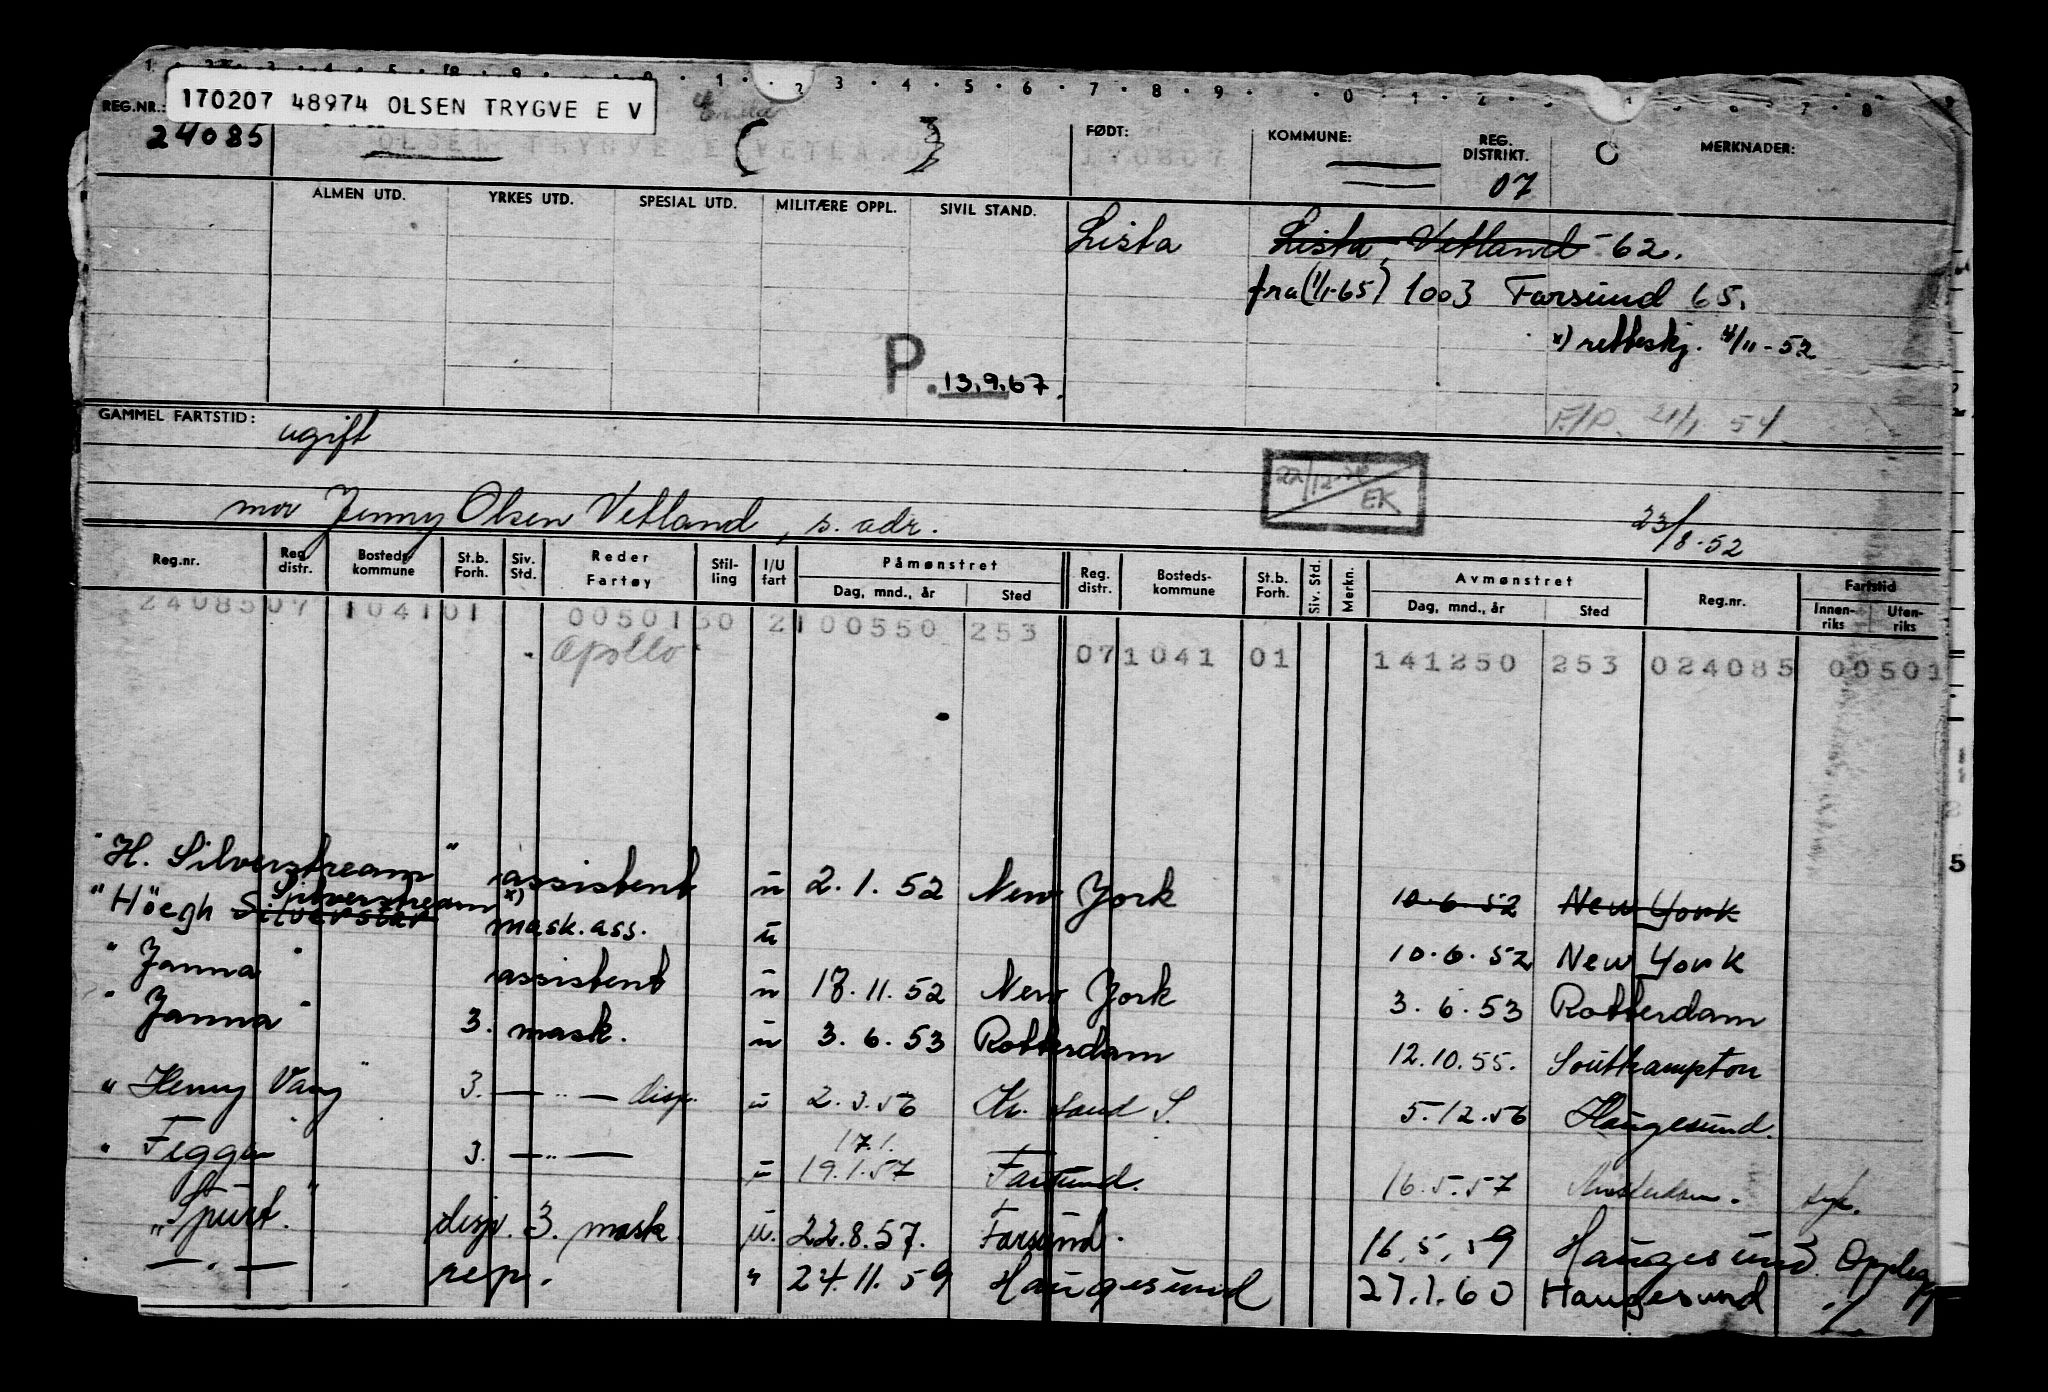 REG.NR.: 170207 48974 OLSEN TRYGVE E V
24085 OLSEN TRYGVE E VETLAND ( ) FØDT: 170807 KOMMUNE: REG. DISTRIKT. 07 MERKNADER:
ALMEN UTD. YRKES UTD. SPESIAL UTD. MILITÆRE OPPL. SIVIL STAND.
Lista Lista, Vetland -62.
fra (1/1-65) 1003 Farsund 65.
x) retteskj. 4/11-52
P. 13.9.67.
F/P. 21/1 54
GAMMEL FARTSTID: ugift
22/12 EK
mor Jenny Olsen Vetland, s. adr. 23/8-52
Reg.nr. Reg. distr. Bosteds-kommune St.b. Forh. Siv. Std. Reder Fartøy Stil-ling I/U fart Påmønstret Dag, mnd., år Sted Reg. distr. Bosteds-kommune St.b. Forh. Siv. Std. Merkn. Avmønstret Dag, mnd., år Sted Reg.nr. Fartstid Innen-riks Uten-riks
24085 07 1041 01 0050130 2 100550 253 07 1041 01 141250 253 024085 00501
Apollo
"H. Silverstream" assistent u 2.1.52 New York 10.6.52 New York
"Höegh Silverstar Silverstream x) mask.ass. u 10.6.52 New York
"Janna" assistent u 18.11.52 New York 3.6.53 Rotterdam
"Janna" 3. mask. u 3.6.53 Rotterdam 12.10.55. Southampton
"Henny Vang" 3. — " — disp. u 2.3.56 Kr. sand S. 5.12.56 Haugesund.
17.1.
"Feggen" 3. — " — u 19.1.57 Farsund. 16.5.57 Amsterdam. syk.
"Spurt." disp. 3. mask. u. 22.8.57. Farsund. 16.5.59 Haugesund. Opplegg
— . — rep. " 24.11.59 Haugesund 27.1.60 Haugesund
5